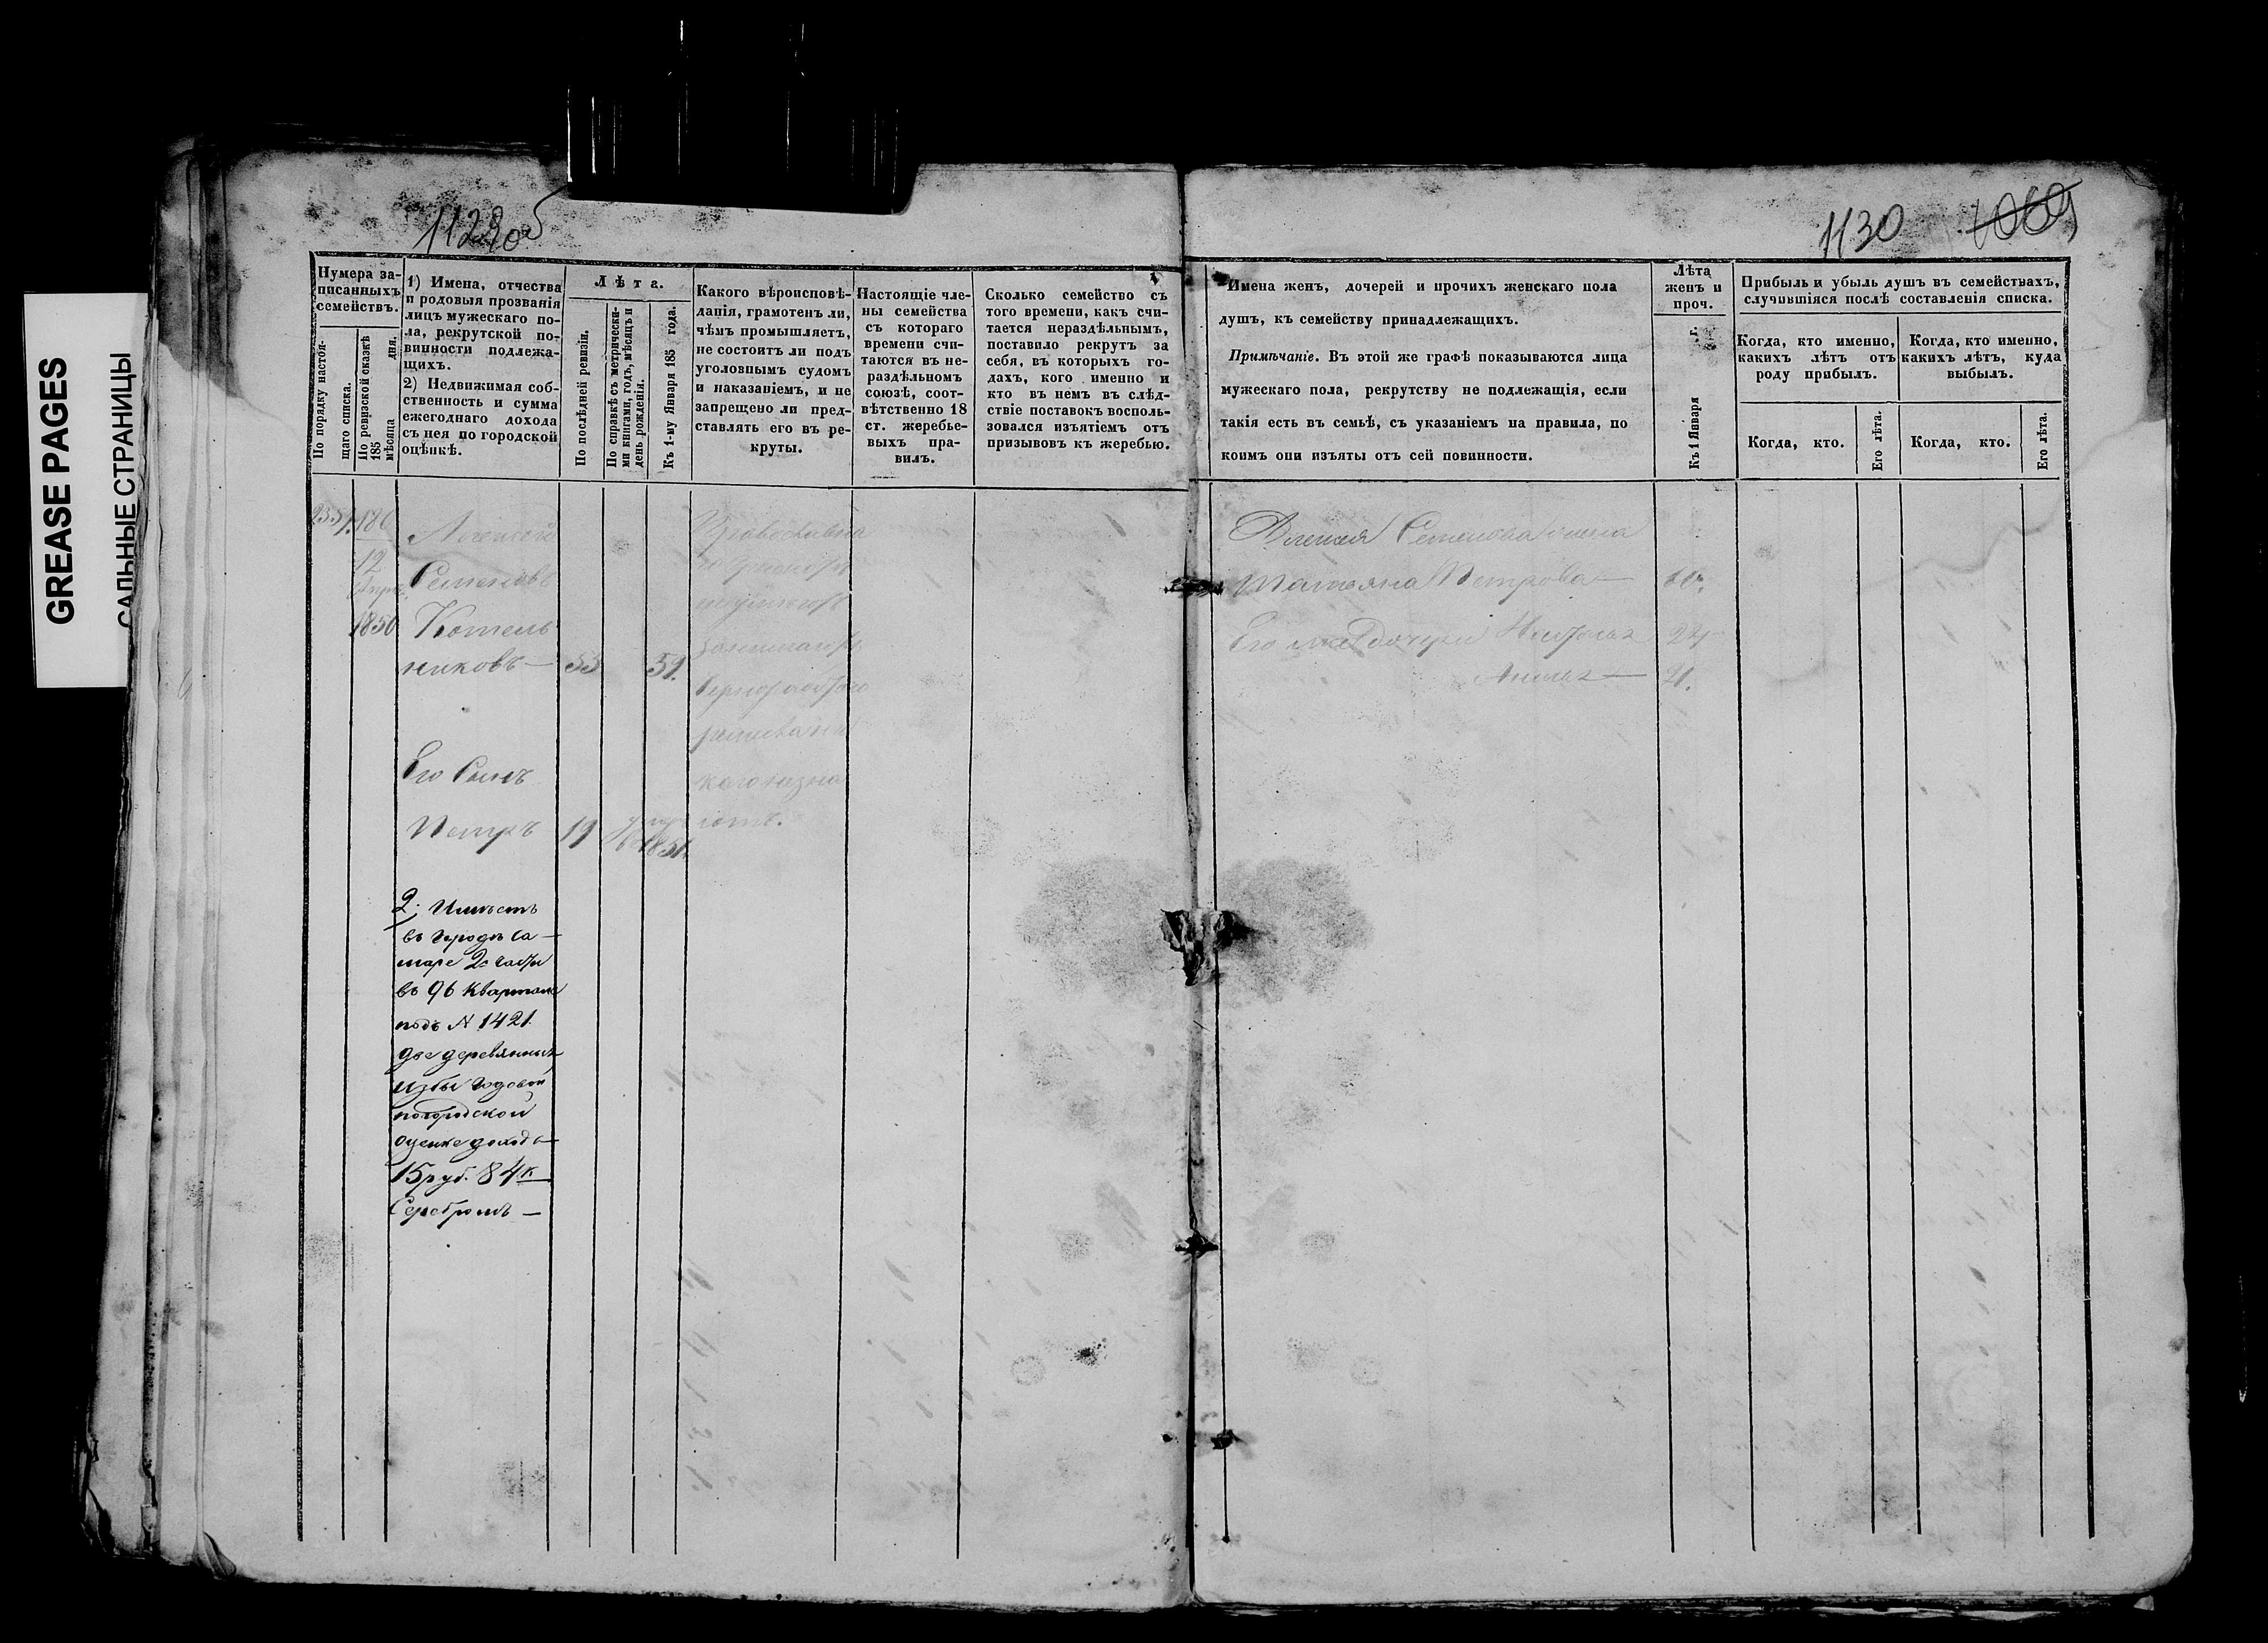 GREASE PAGES
САЛЬНЫЕ СТРАНИЦЫ
1129об
1130 1069
Нумера за-
писанныхъ
семействъ.
По порядку настоя-
щаго списка.
По ревизской сказкѣ
185 дня.
мѣсяца
1) Имена, отчества
и родовыя прозванія
лицъ мужескаго по-
ла, рекрутской по-
винности подлежа-
щихъ.
2) Недвижимая соб-
ственность и сумма
ежегоднаго дохода
съ нея по городской
оцѣнкѣ.
Лѣта.
По послѣдней ревизіи.
По справкѣ съ метрически-
ми книгами, годъ, мѣсяцъ и
день рожденія.
Къ 1-му Января 185 года.
Какого вѣроисповѣ-
данія, грамотенъ ли,
чѣмъ промышляетъ,
не состоитъ ли подъ
уголовнымъ судомъ
и наказаніемъ, и не
запрещено ли пред-
ставлять его въ ре-
круты.
Настоящіе чле-
ны семейства
съ котораго
времени счи-
таются въ не-
раздѣльномъ
союзѣ, соот-
вѣтственно 18
ст. жеребье-
выхъ пра-
вилъ.
Сколько семейство съ
того времени, какъ счи-
тается нераздѣльнымъ,
поставило рекрутъ за
себя, въ которыхъ го-
дахъ, кого именно и
кто въ немъ въ слѣд-
ствіе поставокъ восполь-
зовался изъятіемъ отъ
призывовъ къ жеребью.
Имена женъ, дочерей и прочихъ женскаго пола
душъ, къ семейству принадлежащихъ.
Примѣчаніе. Въ этой же графѣ показываются лица
мужескаго пола, рекрутству не подлежащія, если
такія есть въ семьѣ, съ указаніемъ на правила, по
коимъ они изъяты отъ сей повинности.
Лѣта
женъ и
проч.
Къ 1 Января г.
Прибыль и убыль душъ въ семействахъ,
случившіяся послѣ составленія списка.
Когда, кто именно,
какихъ лѣтъ отъ
роду прибылъ.
Когда, кто именно,
какихъ лѣтъ, куда
выбылъ.
Когда, кто.
Его лѣта.
Когда, кто.
Его лѣта.
12
1850
Алексей
Семеновъ
Котель
никовъ — 53 59.
Его Сынъ
Петръ 19
Православна
занимается
Алексея Семенова жена
Татьяна Петрова —
Его же дочери 24
21.
2. Имѣетъ
въ городѣ Са-
маре 2й части
въ 96 квартале
подъ N 1421.
две деревянныя
избы годовой
по городской
оценке доходъ
15 руб. 84 к
Серебромъ —